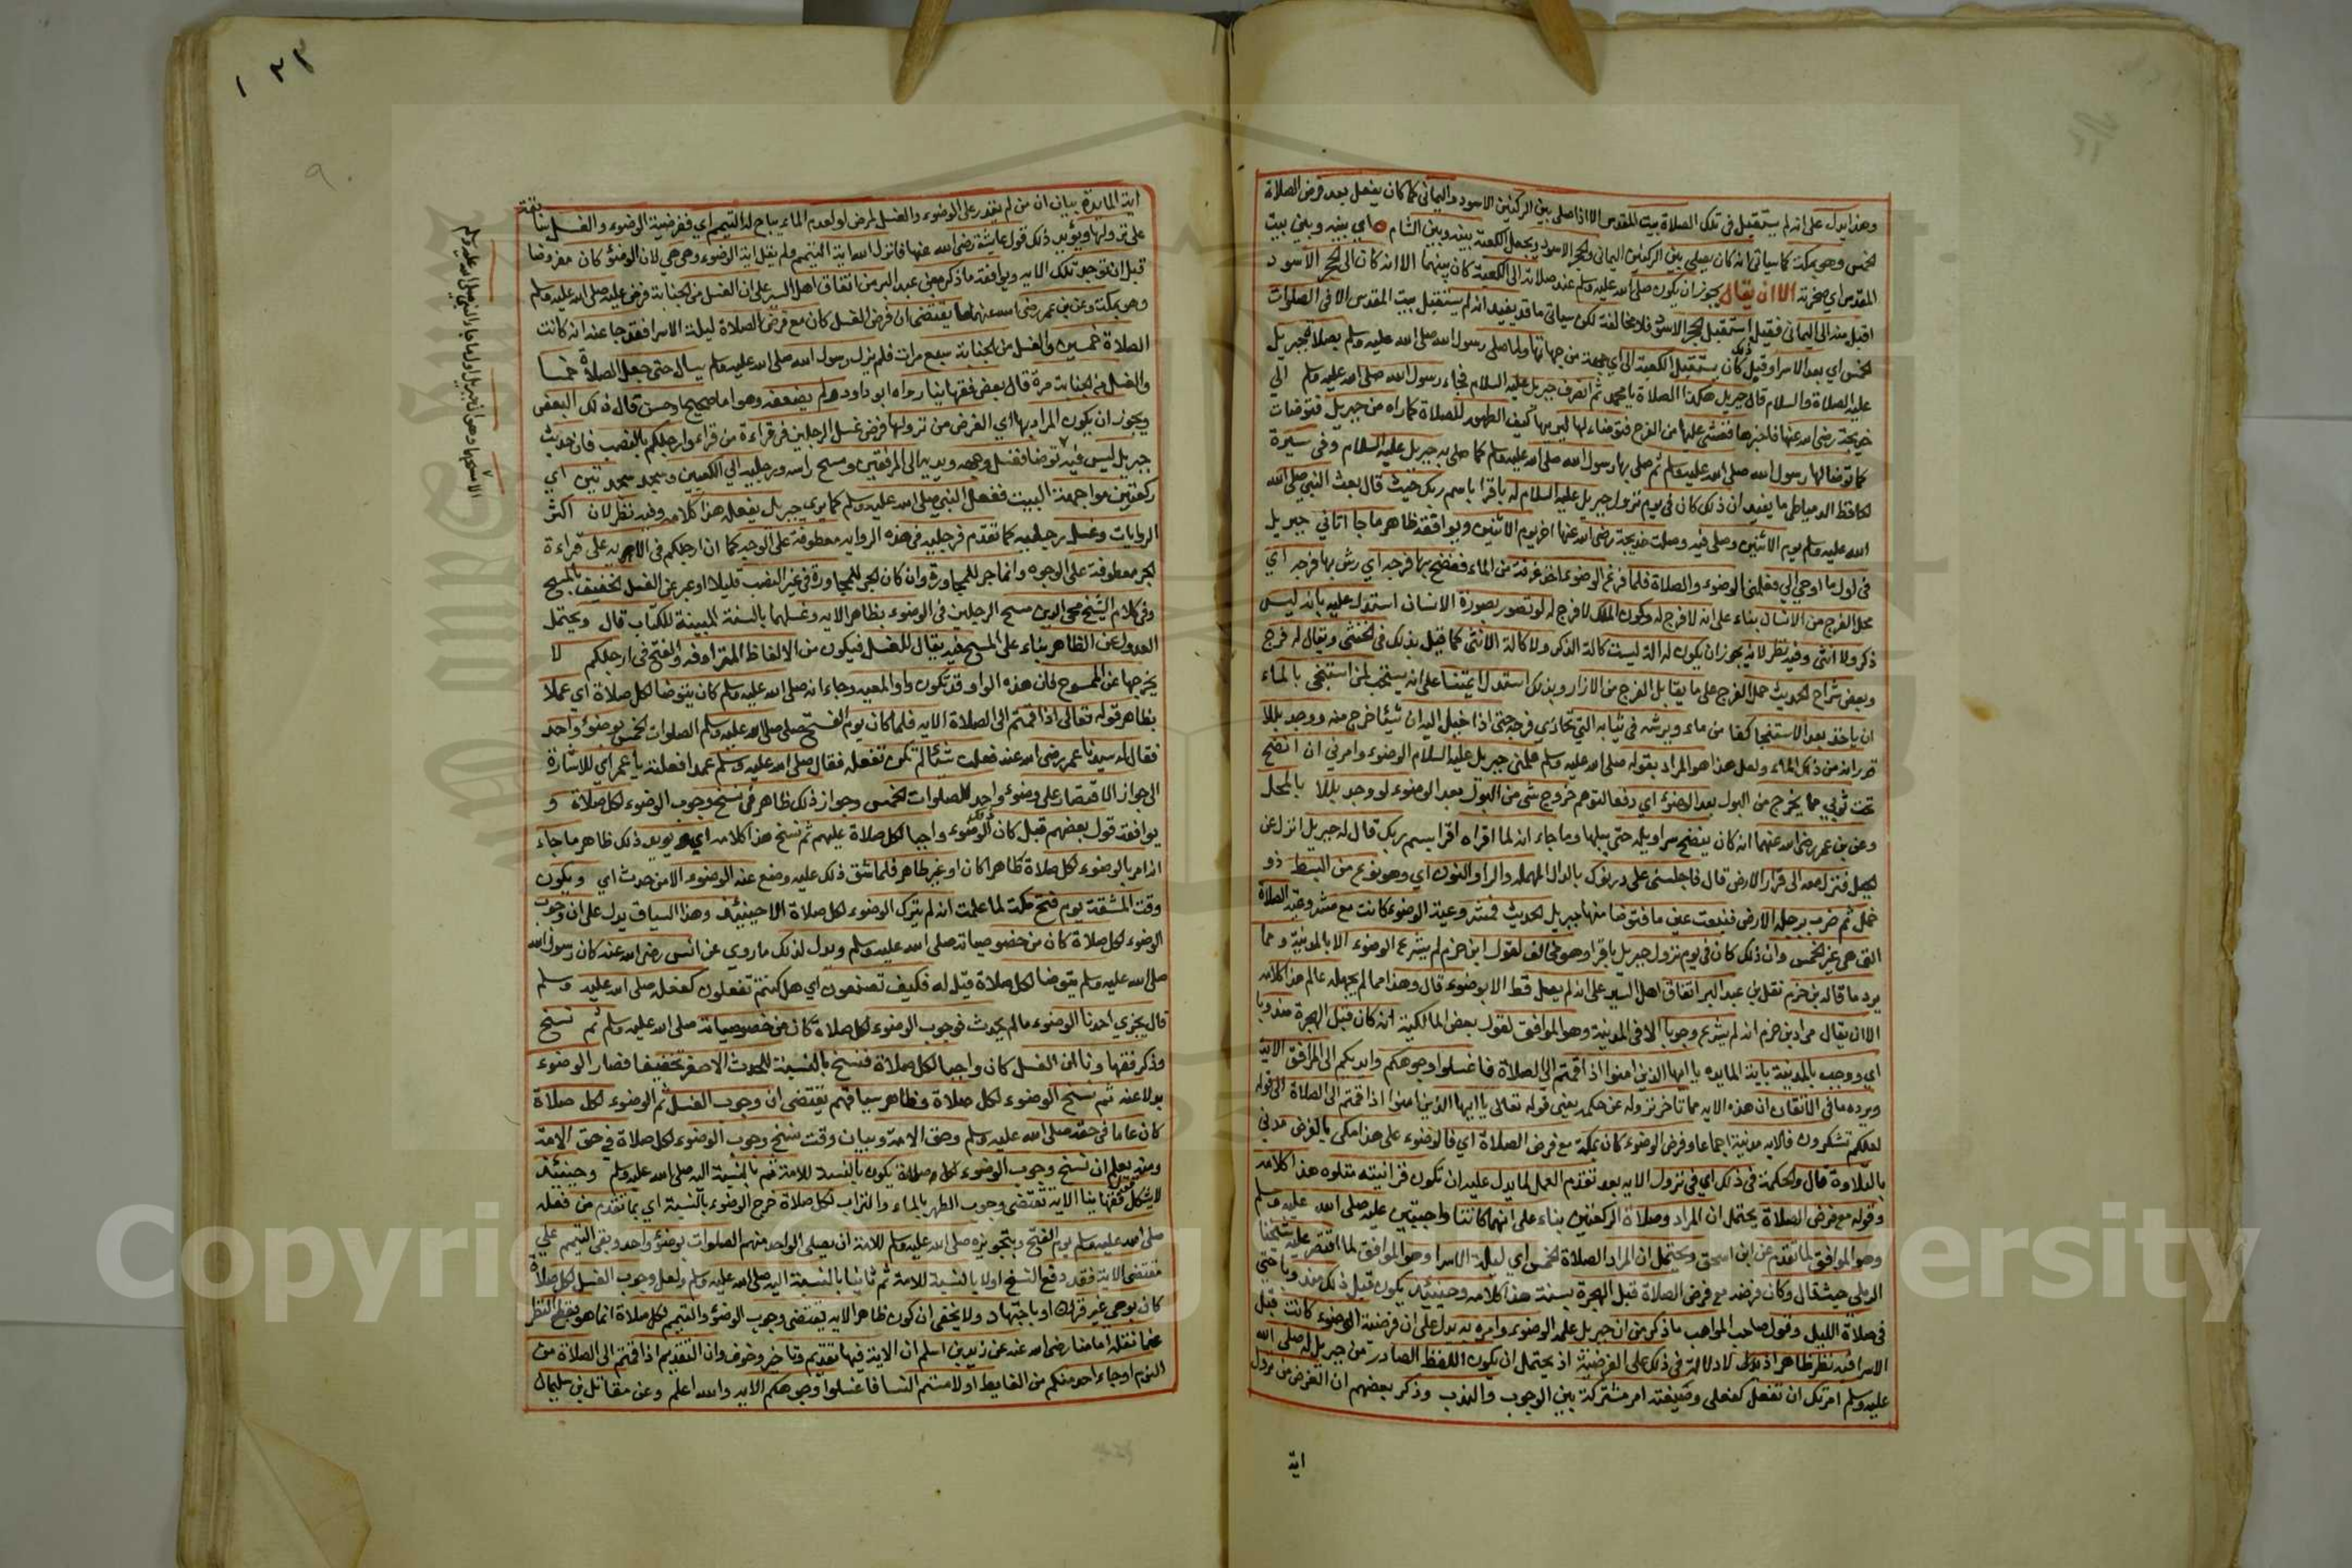 وهذا يدل على انه لم يستقبل في تلك الصلاة بيت المقدس الا اذا صلى بين الركنين الاسود واليماني كما كان يفعل بعد فرض الصلاة
الخمس وهي بمكة كما سياتي انه كان يصلي بين الركنين اليماني والحجر الاسود ويجعل الكعبة بينه وبين الشام اي بينه وبين بيت
المقدس اي صخرته الا ان يقال يجوز ان يكون صلى الله عليه وسلم عند صلاته الى الكعبة كان بينهما الا انه كان الى الحجر الاسود
اقبل منه الى اليماني فقيل استقبل الحجر الاسود فلا مخالفة لكن سياتي ما قد يفيد انه لم يستقبل بيت المقدس الا في الصلوات
الخمس اي بعد الاسرا وقبل ذلك كان يستقبل الكعبة الى اي جهة من جهاتها ولما صلى رسول الله صلى الله عليه وسلم بصلاة جبريل
عليه الصلاة والسلام قال جبريل هكذا الصلاة يا محمد ثم انصرف جبريل عليه السلام فجاء رسول الله صلى الله عليه وسلم الى
خديجة رضي الله عنها فاخبرها فغشي عليها من الفرح فتوضاء لها ليريها كيف الطهور للصلاة كما اراه من جبريل فتوضات
كما توضا لها رسول الله صلى الله عليه وسلم ثم صلى بها رسول الله صلى الله عليه وسلم كما صلى به جبريل عليه السلام وفي سيرة
الحافظ الدمياطي ما يفيد ان ذلك كان في يوم نزول جبريل عليه السلام له باقرا باسم ربك حيث قال بعث النبي صلى الله
عليه وسلم يوم الاثنين وصلى فيه وصلت خديجة رضي الله عنها اخر يوم الاثنين ويوافقه ظاهر ما جا اتاني جبريل
في اول ما اوحي الي فعلمني الوضوء والصلاة فلما فرغ الوضوء اخذ غرفة من الماء فنضح بها فرجه اي رش بها فرجه اي
محل الفرج من الانسان بناء على انه لا فرج له وكون الملك لا فرج له لو تصور بصورة الانسان استدل عليه بانه ليس
ذكر ولا انثى وفيه نظر لانه يجوز ان يكون له الة ليست كالة الذكر ولا كالة الانثى كما قيل بذلك في الخنثى ويقال له فرج
وبعض شراح الحديث حمل الفرج على ما يقابل الفرج من الازار وبذلك استدل ائمتنا على انه يستحب لمن استنجى بالماء
ان ياخذ بعد الاستنجا كفا من ماء ويرش في ثيابه التي تحاذي فرجه حتى اذا خيل اليه ان شيئا خرج منه ووجد بللا
قدر انه من ذلك الماء ولعل هذا هو المراد بقوله صلى الله عليه وسلم علمني جبريل عليه السلام الوضوء وامرني ان انضح
تحت ثوبي مما يخرج من البول بعد الوضوء اي دفعا لتوهم خروج شي من البول بعد الوضوء لو وجد بللا بالمحل
وعن بن عمر رضي الله عنهما انه كان ينضح سراويله حتى يبلها وما جاء انه لما اقراه اقرا بسم ربك قال له جبريل انزل عن
الجبل فنزل معه الى قرار الارض قال فاجلسني على درنوك بالدال المهملة والرا والنون اي وهو نوع من البسط ذو
خمل ثم ضرب برجله الارض فنبعت عين ما فتوضا منها جبريل الحديث فمشروعية الوضوء كانت مع مشروعية الصلاة
التي هي غير الخمس وان ذلك كان في يوم نزول جبريل باقرا وهو مخالف لقول ابن حزم لم يشرع الوضوء الا بالمدينة ومما
يرد ما قاله بن حزم نقل بن عبد البر اتفاق اهل السير على انه لم يصل قط الا بوضوء قال وهذا مما لم يجهله عالم هذا كلامه
الا ان يقال مراد بن حزم انه لم يشرع وجوبا الا في المدينة وهو الموافق لقول بعض المالكية انه كان قبل الهجرة مندوبا
اي ووجب بالمدينة باية المايده يا ايها الذين امنوا اذا قمتم الى الصلاة فاغسلوا وجوهكم وايديكم الى المرافق الاية
ويرده ما في الاتقان ان هذه الايه مما تاخر نزوله عن حكمه يعني قوله تعالى يا ايها الذين امنوا اذا قمتم الى الصلاة الى قوله
لعلكم تشكرون فالايه مدنية اجماعا وفرض الوضوء كان بمكة مع فرض الصلاة اي فالوضوء على هذا مكي بالفرض مدني
بالتلاوة قال والحكمة في ذلك اي في نزول الايه بعد تقدم العمل لما يدل عليه ان تكون قرانيته متلوه هذا كلامه
وقوله مع فرض الصلاة يحتمل ان المراد وصلاة الركعتين بناء على انهما كانتا واجبتين عليه صلى الله عليه وسلم
وهو الموافق لما تقدم عن ابن اسحق ويحتمل ان المراد الصلاة الخمس اي ليلة الاسرا وهو الموافق لما اقتصر عليه شيخنا
الرملي حيث قال وكان فرضه مع فرض الصلاة قبل الهجرة بسنة هذا كلامه وحينئذ يكون قبل ذلك مندوبا حتى
في صلاة الليل وقول صاحب المواهب ما ذكر من ان جبريل علمه الوضوء وامره به يدل على ان فرضية الوضوء كانت قبل
الاسرا فيه نظر ظاهر اذ لا دلالة في ذلك على الفرضية اذ يحتمل ان يكون اللفظ الصادر من جبريل له صلى الله
عليه وسلم امرتك ان تفعل كفعلي وصيغة امر مشتركة بين الوجوب والندب وذكر بعضهم ان الغرض من نزول
اية
اية المايدة بيان ان من لم يقدر على الوضوء والغسل لمرض او لعدم الماء يباح له التيمم اي ففرضية الوضوء والغسل سابقة
على نزولها ويؤيد ذلك قول عايشة رضي الله عنها فانزل الله اية التيمم ولم يقل اية الوضوء وهي هي لان الوضوء كان مفروضا
قبل ان توجد تلك الايه ويوافقه ما ذكره بن عبد البر من اتفاق اهل السير على ان الغسل من الجنابة فرض عليه صلى الله عليه وسلم
وهو بمكة وعن بن عمر رضي الله عنهما ما يقتضي ان فرض الغسل كان مع فرض الصلاة ليلة الاسرا فقد جا عنه انه كانت
الصلاة خمسين والغسل من الجنابة سبع مرات فلم يزل رسول الله صلى الله عليه وسلم يسال حتى جعل الصلاة خمسا
والغسل من الجنابة مرة قال بعض فقهاينا رواه ابو داود ولم يضعفه وهو اما صحيح او حسن قال ذلك البعض
ويجوز ان يكون المراد بها اي الغرض من نزولها فرض غسل الرجلين في قراءة من قرا وارجلكم بالنصب فان حديث
جبريل ليس فيه توضا فغسل وجهه ويديه الى المرفقين ومسح راسه ورجليه الى الكعبين وسجد سجدتين اي
ركعتين مواجهة البيت ففعل النبي صلى الله عليه وسلم كما يرى جبريل يفعله هذا كلامه وفيه نظر لان اكثر
الروايات وغسل رجليه كما تقدم فرجليه في هذه الروايه معطوفة على الوجه كما ان ارجلكم في الايه على قراءة
الجر معطوفة على الوجوه وانما جر للمجاورة وان كان الجر للمجاورة في غير النعت قليلا او عبر عن الغسل الخفيف بالمسح
وفي كلام الشيخ محي الدين مسح الرجلين في الوضوء بظاهر الايه وغسلهما بالسنة المبينة للكتاب قال ويحتمل
العدول عن الظاهر بناء على المسح فيه يقال للغسل فيكون من الالفاظ المترادفه والفتح في ارجلكم لا
يخرجها عن الممسوح فان هذه الواو قد تكون واو المعيه وجاء انه صلى الله عليه وسلم كان يتوضا لكل صلاة اي عملا
بظاهر قوله تعالى اذا قمتم الى الصلاة الايه فلما كان يوم الفتح صلى صلى الله عليه وسلم الصلوات الخمس بوضوء واحد
فقال له سيدنا عمر رضي الله عنه فعلت شيئا لم تكن تفعله فقال صلى الله عليه وسلم عمدا فعلته يا عمر اي للاشارة
الى جواز الاقتصار على وضوء واحد للصلوات الخمس وجواز ذلك ظاهر في نسخ وجوب الوضوء لكل صلاة و
يوافقه قول بعضهم قيل كان الوضوء واجبا لكل صلاة عليهم ثم نسخ هذا كلامه اي ويؤيد ذلك ظاهر ما جاء
انه امر بالوضوء لكل صلاة طاهرا كان او غير طاهر فلما شق ذلك عليه وضع عنه الوضوء الا من حدث اي ويكون
وقت المشقة يوم فتح مكة لما علمت انه لم يترك الوضوء لكل صلاة الا حينئذ وهذا السياق يدل على ان وجوب
الوضوء لكل صلاة كان من خصوصياته صلى الله عليه وسلم ويدل لذلك ما روي عن انس رضي الله عنه كان رسول الله
صلى الله عليه وسلم يتوضا لكل صلاة قيل له فكيف تصنعون اي هل كنتم تفعلون كفعله صلى الله عليه وسلم
قال يجزي احدنا الوضوء ما لم يحدث فوجوب الوضوء لكل صلاة كان من خصوصياته صلى الله عليه وسلم ثم نسخ
وذكر فقهاونا ان الغسل كان واجبا لكل صلاة فنسخ بالنسبة للحدث الاصغر تخفيفا فصار الوضوء
بدلا عنه ثم نسخ الوضوء لكل صلاة وظاهر سياقهم يقتضي ان وجوب الغسل ثم الوضوء لكل صلاة
كان عاما في حقه صلى الله عليه وسلم وحق الامة وبيان وقت نسخ وجوب الوضوء لكل صلاة في حق الامة
ومنه يعلم ان نسخ وجوب الوضوء لكل صلاة يكون بالنسبة للامة ثم بالنسبة اليه صلى الله عليه وسلم وحينئذ
لا يشكل قول فقهاينا الاية تقتضي وجوب الطهر بالماء والتراب لكل صلاة خرج الوضوء بالسنة اي بما تقدم من فعله
صلى الله عليه وسلم يوم الفتح وبتجويزه صلى الله عليه وسلم للامة ان يصلي الواحد منهم الصلوات بوضوء واحد وبقي التيمم على
مقتضى الاية فقد وقع النسخ اولا بالنسبة للامة ثم ثانيا بالنسبة اليه صلى الله عليه وسلم ولعل وجوب الغسل لكل صلاة
كان بوحي غير قران او باجتهاد ولا يخفى ان كون ظاهر الايه يقتضي وجوب الوضوء والتيمم لكل صلاة انما هو بقطع النظر
عما نقله امامنا رضي الله عنه عن زيد بن اسلم ان الاية فيها تقديم وتاخير وحذف وان التقدير اذا قمتم الى الصلاة من
النوم او جاء احد منكم من الغايط او لامستم النسا فاغسلوا وجوهكم الايه والله اعلم وعن مقاتل بن سليمان
١٢٢
٩٠
Copyright © King Saud University